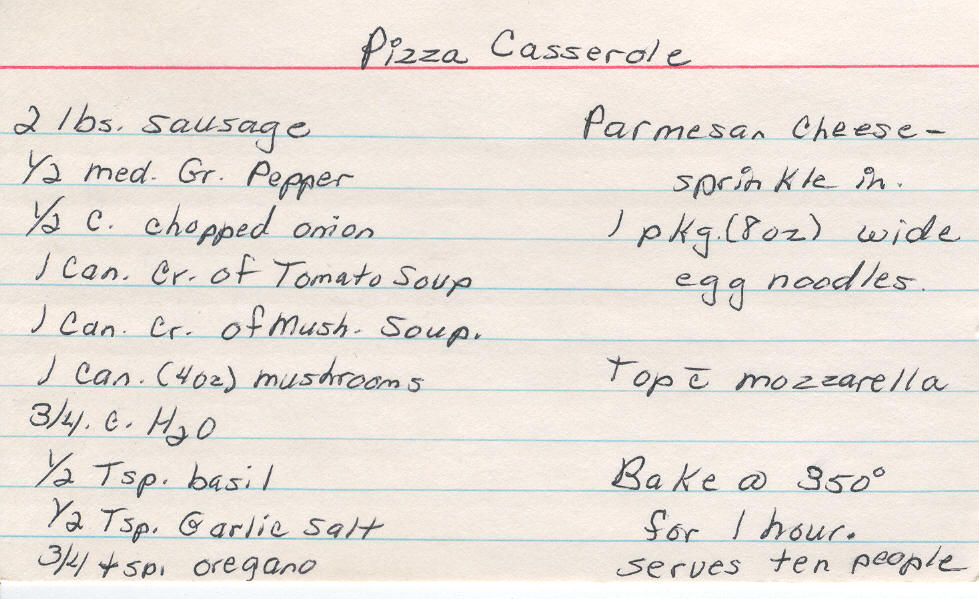 Pizza Casserole
2 lbs. sausage
1/2 med. Gr. Pepper
1/2 C. chopped onion
1 Can. Cr. of Tomato Soup
1 Can. Cr. of Mush. Soup.
1 Can. (4oz) mushrooms
3/4. c. H2O
1/2 Tsp. basil
1/2 Tsp. Garlic salt
3/4 tsp. oregano
Parmesan Cheese-
sprinkle in.
1 pkg. (8oz) wide
egg noodles.
Top c̄ mozzarella
Bake @ 350°
for 1 hour.
serves ten people